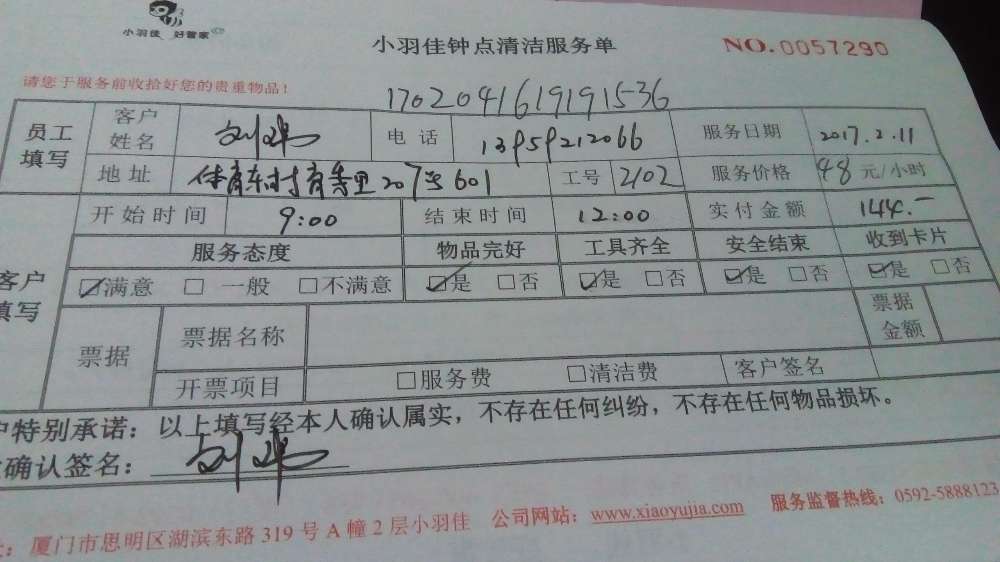 小羽佳 好管家
小羽佳钟点清洁服务单 NO.0057290
请您于服务前收拾好您的贵重物品！
17020416191915​36
员工填写 客户姓名 刘 电话 13959212066 服务日期 2017.2.11
地址 体育东村育秀里207号601 工号 2102 服务价格 48元/小时
开始时间 9:00 结束时间 12:00 实付金额 144.-
客户填写 服务态度 物品完好 工具齐全 安全结束 收到卡片
☑满意 □一般 □不满意 ☑是 □否 ☑是 □否 ☑是 □否 ☑是 □否
票据 票据名称 票据金额
开票项目 □服务费 □清洁费 客户签名
户特别承诺：以上填写经本人确认属实，不存在任何纠纷，不存在任何物品损坏。
确认签名： 刘
厦门市思明区湖滨东路319号A幢2层小羽佳 公司网站：www.xiaoyujia.com 服务监督热线：0592-5888123